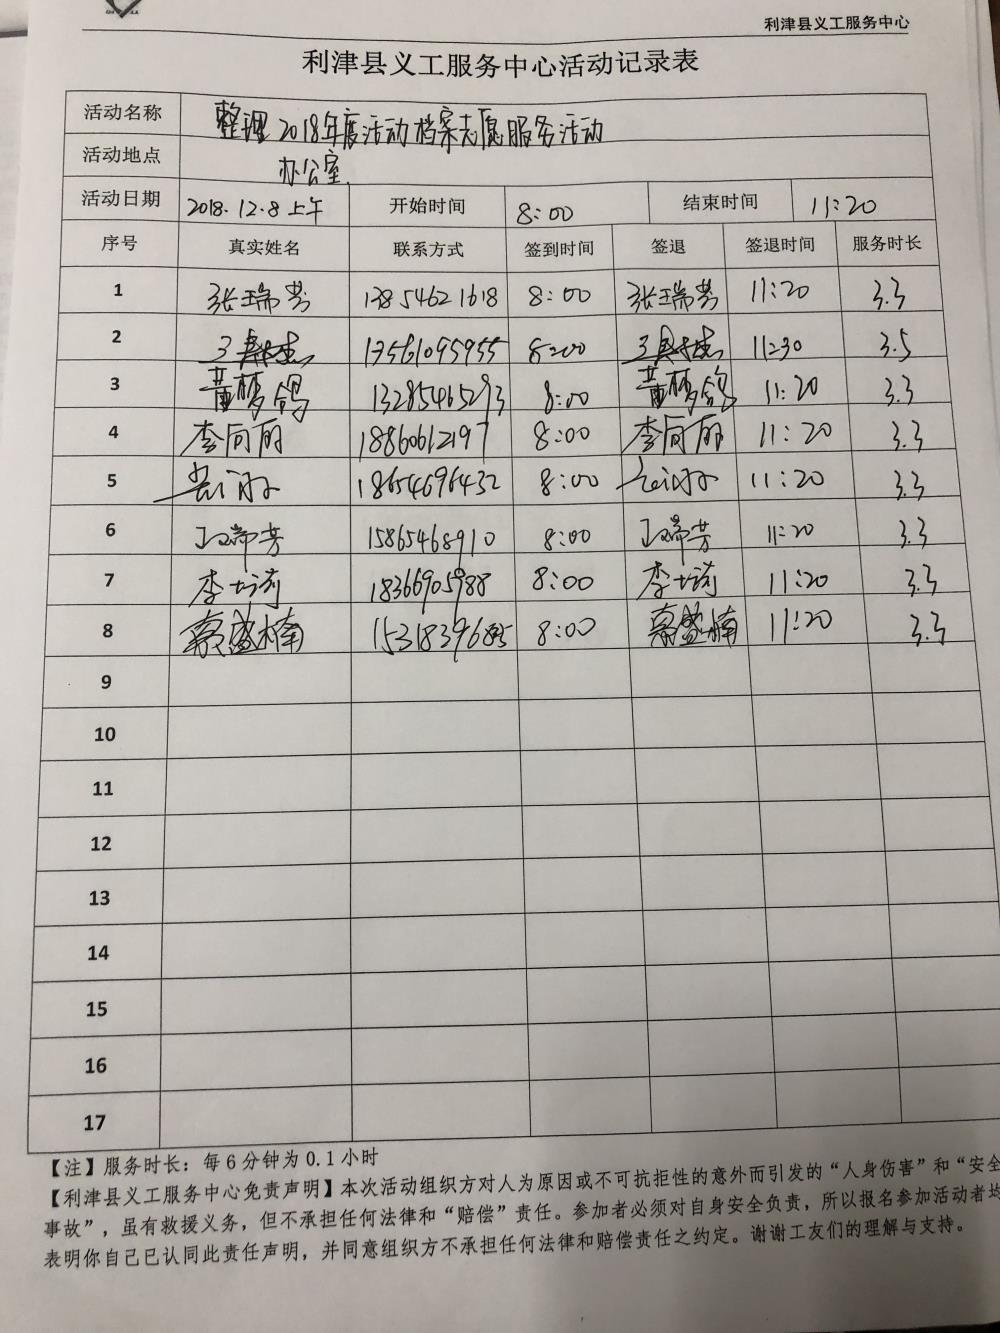 利津县义工服务中心
利津县义工服务中心活动记录表
活动名称 整理2018年度活动档案志愿服务活动
活动地点 办公室
活动日期 2018.12.8上午 开始时间 8:00 结束时间 11:20
序号 真实姓名 联系方式 签到时间 签退 签退时间 服务时长
1 张瑞芳 13854621618 8:00 张瑞芳 11:20 3.3
2 13561095955 8:00 11:30 3.5
3 董梦鸽 13285465293 8:00 董梦鸽 11:20 3.3
4 李向丽 18860612197 8:00 李向丽 11:20 3.3
5 18654696432 8:00 11:20 3.3
6 15865468910 8:00 11:20 3.3
7 李培莉 18366905988 8:00 李培莉 11:20 3.3
8 綦盛楠 8:00 綦盛楠 11:20 3.3
9
10
11
12
13
14
15
16
17
【注】服务时长：每6分钟为0.1小时
【利津县义工服务中心免责声明】本次活动组织方对人为原因或不可抗拒性的意外而引发的“人身伤害”和“安全
事故”，虽有救援义务，但不承担任何法律和“赔偿”责任。参加者必须对自身安全负责，所以报名参加活动者均
表明你自己已认同此责任声明，并同意组织方不承担任何法律和赔偿责任之约定。谢谢工友们的理解与支持。